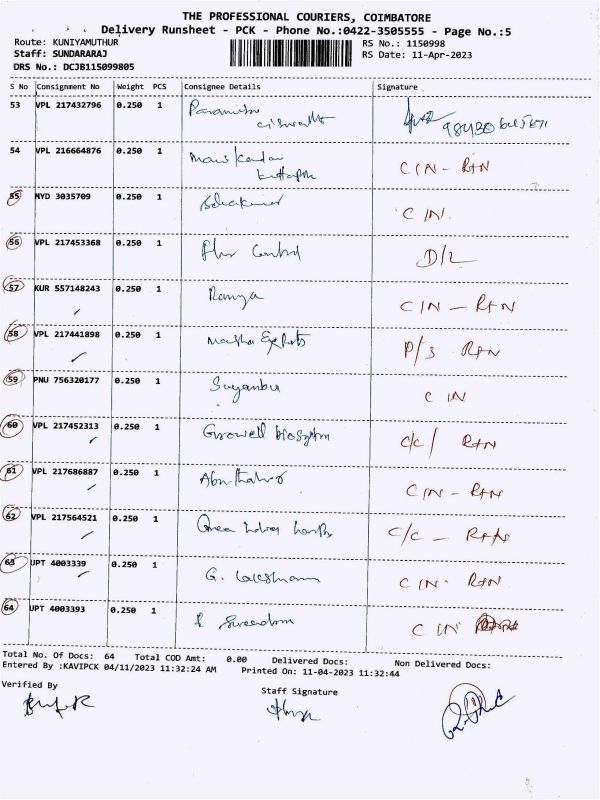 THE PROFESSIONAL COURIERS, COIMBATORE
Delivery Runsheet - PCK - Phone No.:0422-3505555 - Page No.:5
Route: KUNIYAMUTHUR RS No.: 1150998
Staff: SUNDARARAJ RS Date: 11-Apr-2023
DRS No.: DCJB115099805
S No Consignment No Weight PCS Consignee Details Signature
53 VPL 217432796 0.250 1
54 VPL 216664876 0.250 1 CIN - RTN
55 NYD 3035709 0.250 1 CIN.
56 VPL 217453368 0.250 1 Flur Control D/L
57 KUR 557148243 0.250 1 Ramya CIN - RTN
58 VPL 217441898 0.250 1 P/S RTN
59 PNU 756320177 0.250 1 Suyambu CIN
60 VPL 217452313 0.250 1 Growell C/C / RTN
61 VPL 217686887 0.250 1 CIN - RTN
62 VPL 217564521 0.250 1 C/C - RTN
63 UPT 4003339 0.250 1 G. CIN - RTN
64 UPT 4003393 0.250 1 CIN
Total No. Of Docs: 64 Total COD Amt: 0.00 Delivered Docs: Non Delivered Docs:
Entered By :KAVIPCK 04/11/2023 11:32:24 AM Printed On: 11-04-2023 11:32:44
Verified By Staff Signature